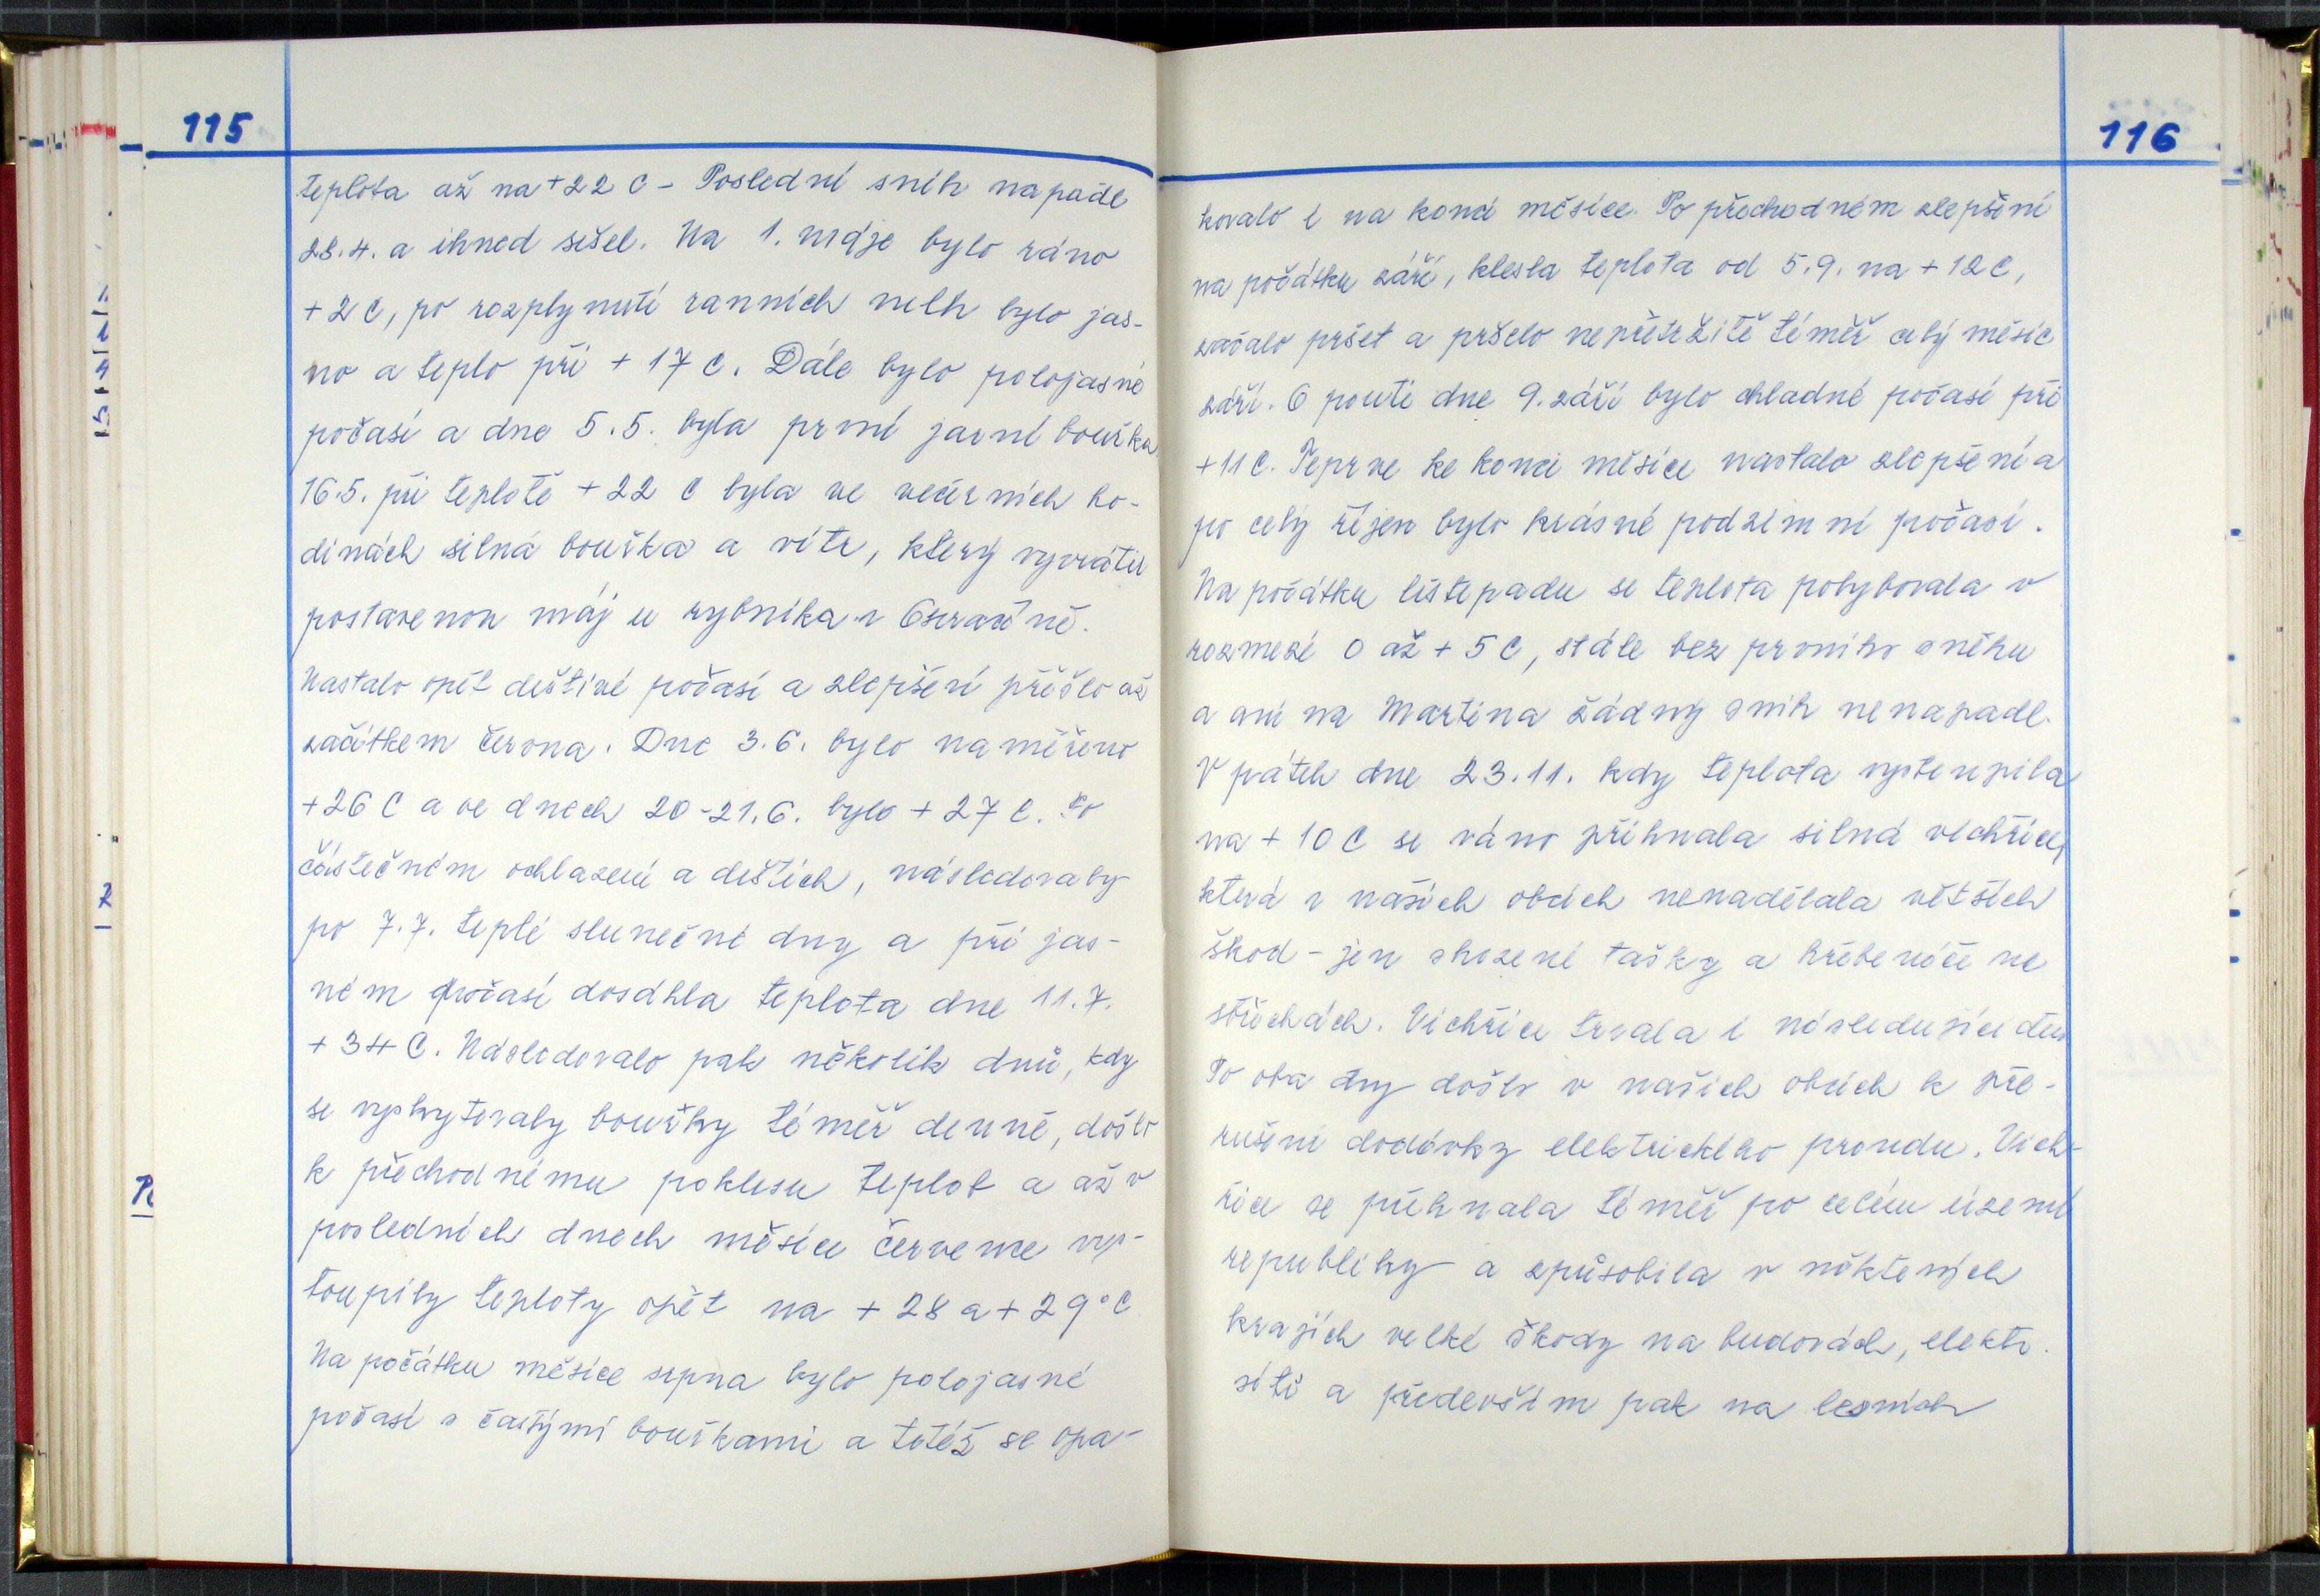 115
teplota až na +22 C - Poslední sníh napadl
28.4. a ihned sešel. Na 1. máje bylo ráno
+2 C, po rozplynutí ranních mlh bylo jas-
no a teplo při + 17 C. Dále bylo polojasné
počasí a dne 5.5. byla první jarní bouřka
16.5. při teplotě +22 C byla ve večerních ho-
dinách silná bouřka a vítr, který vyvrátil
postavenou máj u rybníka v
Nastalo opět deštivé počasí a zlepšení přišlo až
začátkem června. Dne 3.6. bylo naměřeno
+26 C a ve dnech 20-21.6. bylo +27 C. Po
částečném ochlazení a deštích, následovaly
po 7.7. teplé slunečné dny a při jas-
ném počasí dosáhla teplota dne 11.7.
+34 C. Následovalo pak několik dnů, kdy
se vyskytovaly bouřky téměř denně, došlo
k přechodnému poklesu teplot a až v
posledních dnech měsíce července vys-
toupily teploty opět na +28 a +29°C
Na počátku měsíce srpna bylo polojasné
počasí s častými bouřkami a totéž se opa-
116
kovalo i na konci měsíce. Po přechodném zlepšení
na počátku září, klesla teplota od 5.9. na +12 C,
začalo pršet a pršelo nepřetržitě téměř celý měsíc
září. O pouti dne 9. září bylo chladné počasí při
+11 C. Teprve ke konci měsíce nastalo zlepšení a
po celý říjen bylo krásné podzimní počasí.
Na počátku listopadu se teplota pohybovala v
rozmezí 0 až +5 C, stále bez prvního sněhu
a ani na Martina žádný sníh nenapadl.
V pátek dne 23.11. kdy teplota vystoupila
na +10 C se ráno přihnala silná vichřice,
která v našich obcích nenadělala větších
škod - jen shozené tašky a hřebenáče na
střechách. Vichřice trvala i následující den
Po oba dny došlo v našich obcích k pře-
rušení dodávky elektrického proudu. Vich-
řice se přihnala téměř po celém území
republiky a způsobila v některých
krajích velké škody na budovách, elektr.
síti a především pak na lesních